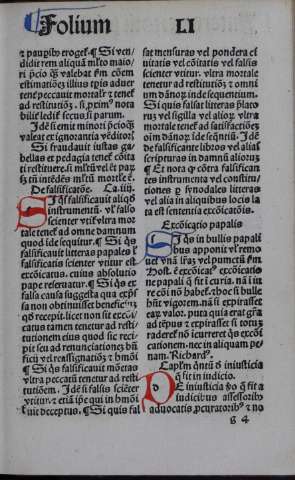 Folium LI
⁊ paupib⁹ erogēt. ¶ Si ven/
didit rem aliquā ml̓to maio/
ri p̄cio q̄ valebat ꝑm cōem
estimatiōez illius tp̄is aduer
tens peccauit mortalr̄ ⁊ tenet
ad restitutiōz. si ꝓxim⁹ nota
bilit̓ ledit̓ secus si parum.
Idē si emit minori p̄cio q̄
valeat ex ignorantia vēditor̄.
Si fraudauit iustas ga/
bellas et pedagia tenet̓
ti restituere.
De falsificatōe. Ca. iiij.
Siq̄s falsificauit aliqd̓
instrumentū. vl̓ falso
scienter vtit̓ vltra mor
tale tenet̓ ad omne damnum
quod ide sequitur. ¶ Si q̄s
falsificauit litteras papales l̓
falsificatis scienter vtitur est
excōicatus. cuius absolutio
pape reseruatur. ¶ Si q̄s ex
falsa causa suggesta qua exp̄s
sa non obtinuisset beneficiū
qd̓ recepit. licet non sit excōi
catus tamen tenetur ad resti
tutionem eius quod sic reci
pit seu ad renunciationez bn̄
ficij vel reassignatiōz ⁊ hm̄oi
¶ Si q̄s falsificauit mōetas
vltra peccatū tenetur ad resti
tutiōem. Idē si falsis sciēter
vtitur. ⁊ etiā ip̄e qui in hm̄oi
fuit deceptus. ¶ Si quis fal
sat mensuras vel pondera ci
uitatis vel cōitatis vel falsis
scienter vtitur. vltra mortale
tenetur ad restitutiōz ⁊ omni
um dānor̄ inde sequentium.
Si quis falsat litteras p̄lato
rum vel sigilla vel alior̄. vltra
mortale tenet̓ ad satisfactiōez
oīm dānor̄ ide seq̄ntiū. Idē
de falsificante libros vel alias
scripturas in damnū aliorum
¶ Et nota q̄ cōtra falsifican
tes instrumenta vel constitu/
tiones ꝑ synodales litteras
vel alia in aliquibus locis la
ta est sententia excōicatōis.
Excōicatio papalis
Siq̄s in bullis papali
bus apponit vl̓ remo/
uet vnā l̓ram vel punctū ꝑm
Host. ē excōicat⁹ excōicatio
ne papali q̄ fit ī curia. nā ī iu
re cōi nō habet̓. ⁊ hoc si bulle
hn̄t vigorem. nā si expirasset
eaꝝ valor. puta quia erat grā
ad tēpus ⁊ expirasset si totum
raderet̓ nō icurreret q̄s excōi
cationem. nec in aliquam pe/
nam. Richard⁹.
Caplm̄ qntū de iniusticia
q̄ fit in iudicio.
De iniusticia ꝟo q̄ fit a
iudicibus assessorib⁹
aduocatis ꝓcuratorib⁹ ⁊ no
g 4